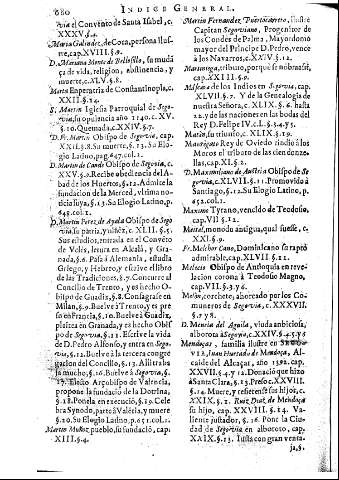 680 INDICE GENERAL.
via el Convento de Santa Isabel, c.
XXXV. §.4.
Maria Galindez, de Coca, persona Ilus-
tre, cap. XVIII. §.9.
D. Mariana Monte de Bellosillo, su mudā
ça de vida, religion, abstinencia, y
muerte, c. XLV. §.8.
Marin Enperatriz de Constantinopla, c.
XXII. §.14.
S. Martin Iglesia Parroquial de Segovia,
su opulencia año 1140. c. XV.
§.10. Quemada, c. XXIV. §.7.
D. Fr. Martin Obispo de Segovia, cap.
XXI. §.8. Su muerte, §.12. Su Elo-
gio Latino, pag. 647. col. 1.
D. Martin de Cande Obispo de Segovia, c.
XXV. §.2. Recibe obediencia del A-
bad de los Huertos, §.12. Admite la
fundacion de la Merced, vltima no-
ticia suya, §.13. Su Elogio Latino, p.
648. col. 1.
D. Martin Perez de Ayala Obispo de Sego-
via, su patria, y niñez, c. XLII. §.5.
Sus estudios, entrada en el Convēto
de Velès, letura en Alcalà, y Grana-
da, §.6. Pasa à Alemania, estudia
Griego, y Hebreo, y escrive el libro
de las Tradiciones, §.7. Concurre al
Concilio de Trento, y es hecho O-
bispo de Guadix, §.8. Consagrase en
Milan, §.9. Buelve à Trento, y es pre
so en Francia, §.10. Buelve à Guadix,
pleitea en Granada, y es hecho Obif-
po de Segovia, §.12. Escrive la vida
de D. Pedro Alfonso, y entra en Sego-
via, §.12. Buelve à la tercera congre-
gacion del Concilio, §.13. Alli trabaja
mucho, §.16. Buelve à Segovia, §.
17. Electo Arçobispo de Valencia,
propone la fundacion de la Dotrina,
§.18. Ponela en execució, §.19. Cele
bra Synodo, parte à Valècia, y muere
§.20. Su Elogio Latino, p. 651. col. 1.
Martin Muñoz, pueblo, su fundació, cap.
XIII. §.4.
Martin Fernandez Puertocarrero, ilustre
Capitan Segoviano, Progenitor de
los Condes de Palma, Mayordomo
mayor del Principe D. Pedro, vence
à los Navarros, c. XXIV. §.12.
Marzaniega, tributo, porquè se nōbrase,
cap. XXIII. §.9.
Mascara de los Indicos en Segovia, cap.
XLVII. §.7. Y de la Genealogia de
nuestra Señora, c. XLIX. §.6. hasta
12. y de las naciones en las bodas del
Rey D. Felipe IV. c. L. §.3.4. y 5.
Maria, su triunfo, c. XLIX. §.19.
Mauregato Rey de Oviedo rindiò a los
Moros el tributo de las cien donze-
llas, cap. XI. §.2.
D. Maximiliano de Austria Obispo de Se-
govia, c. XLVII. §.11. Promovido à
Santiago, §.12. Su Elogio Latino, p.
652. col. 1.
Maximo Tyrano, vencido de Teodosio,
cap. VII. §.12.
Meital, monedo antigua, qual fuesse, c.
XXI. §.9.
Fr. Melchor Cano, Dominicano su raptò
admirable, cap. XXI. §.2.
Melecio Obispo de Antioquia en reve-
lacion corona à Teodosio Magno,
cap. VII. §.3. y 6.
Melon, corchete, ahorcado por los Co-
muneros de Segovia, c. XXXVII.
§.7. y 8.
D. Mencia del Aguila, viuda anbiciosa,
alborota à Segovia, c. XXIV. §.4.5. y 6
Mendoças, familia ilustre en Sego-
via, Juan Hurtado de Mendoça, Al-
caide del Alcaçar, año 1392. cap.
XXVII. §.4. y 14. Donaciō que hizo
à Santa Clara, §.13. Preso c. XXVIII.
§.14. Muere, y refierense sus hijos, c.
XXIX. §.2. Ruiz Diaz de Mendoça
su hijo, cap. XXVIII. §.14. Va-
liente justador, §.16. Pone la Ciu-
dad de Segovia en alboroto, cap.
XXIX. §.13. Iusta con gran venta-
ja, §.